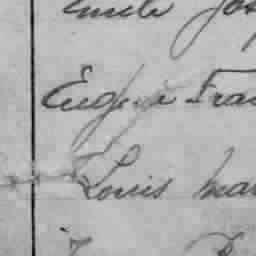 Emile Jos
Eugene Fran
Louis mar